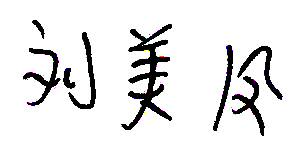 刘美凤